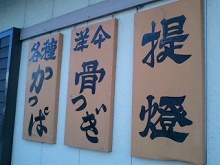 各種
かっぱ
洋仐
骨つぎ
提燈